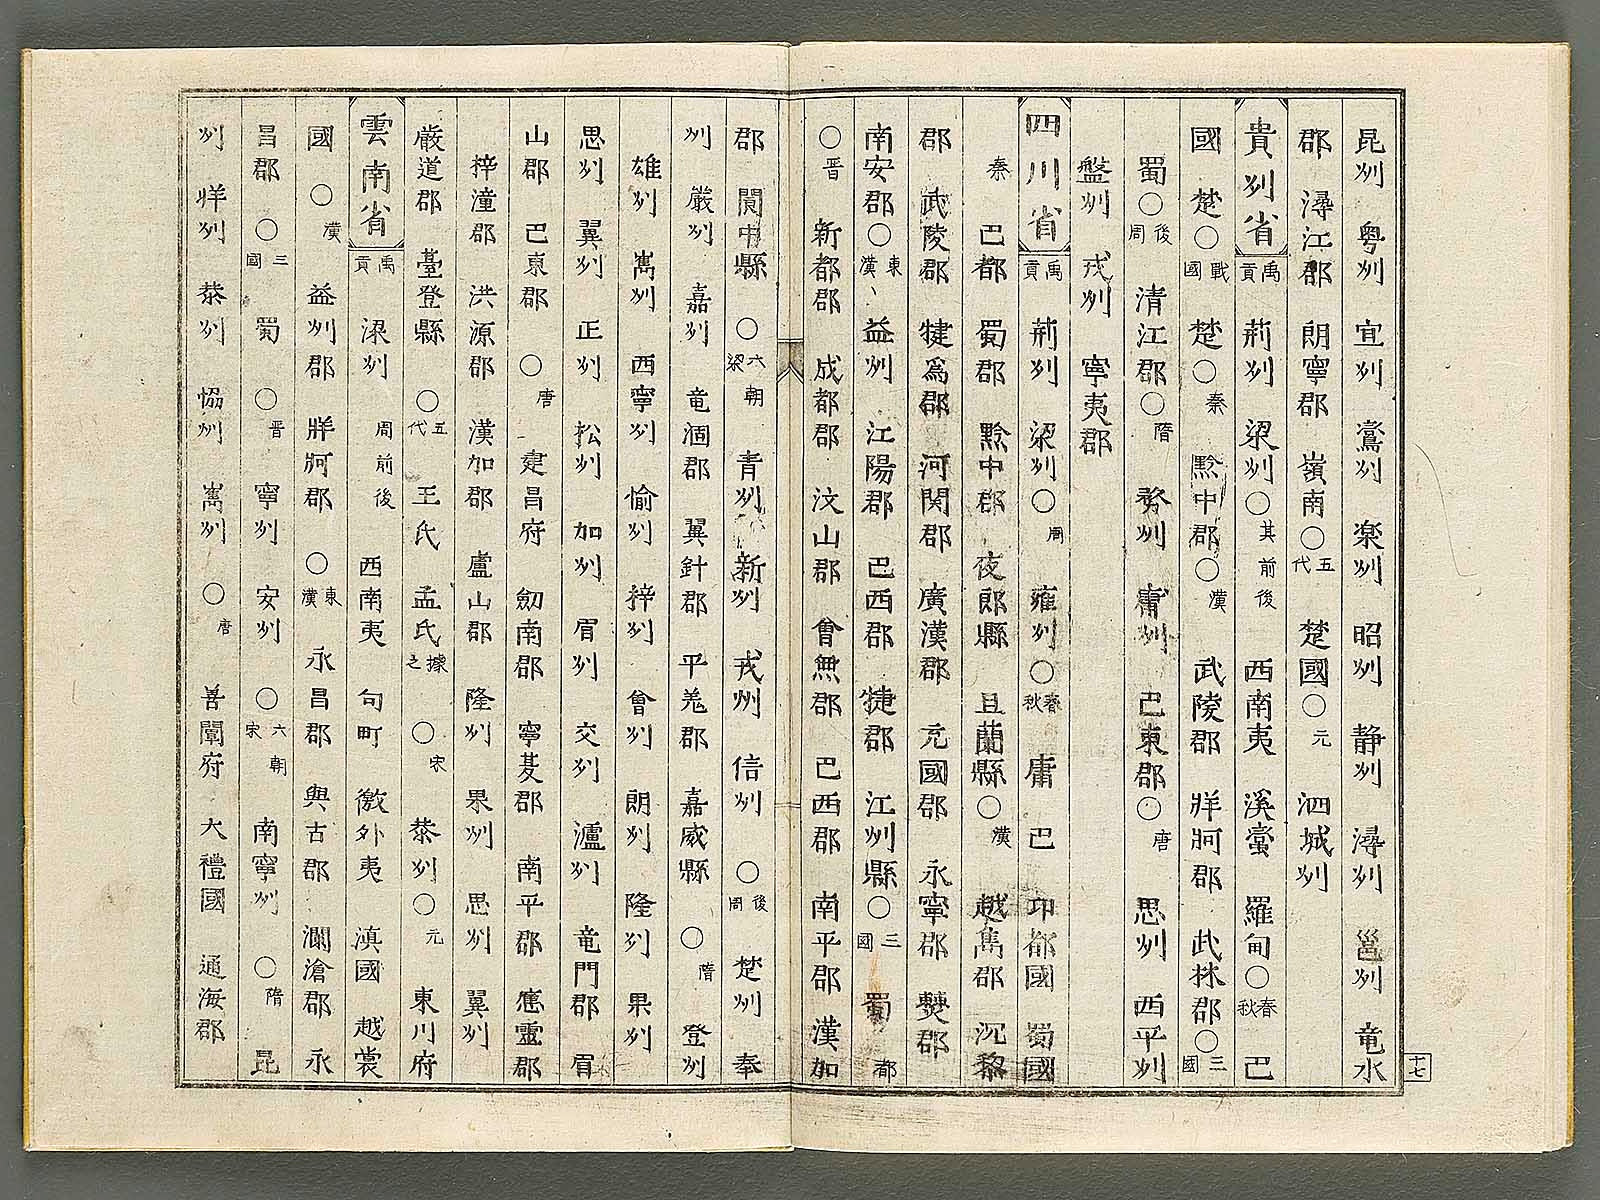 昆州 粤州 宜州 鸞州 楽州 昭州 静州 潯州 邕州 竜水
郡 潯江郡 朗寧郡 嶺南〇五代 楚國〇元 泗城州
貴州省 禹貢 荊州 梁州〇其前後 西南夷 溪蛮 羅甸〇春秋 巴
國 楚〇戰國 楚〇秦 黔中郡〇漢 武陵郡 牂牁郡 武林郡〇三國
蜀〇後周 清江郡〇隋 務州 庸州 巴東郡〇唐 思州 西平州
盤州 戎州 寧夷郡
四川省 禹貢 荊州 梁州〇周 雍州〇春秋 庸 巴 卭都國 蜀國
秦 巴都 蜀郡 黔中郡 夜郎縣 且蘭縣〇漢 越嶲郡 沉黎
郡 武陵郡 犍為郡 河関郡 廣漢郡 充國郡 永寧郡 僰郡
南安郡〇東漢、益州 江陽郡 巴西郡 犍郡 江州縣〇三國 蜀 都
〇晋 新都郡 成都郡 汶山郡 會無郡 巴西郡 南平郡 漢加
郡 閬中縣 〇六朝梁 青州 新州 戎州 信州 〇後周 楚州 奉
州 嚴州 嘉州 竜涸郡 翼針郡 平羗郡 嘉威縣 〇隋 登州
雄州 嶲州 西寧州 愉州 梓州 會州 朗州 隆州 果州
思州 翼州 正州 松州 加州 眉州 交州 瀘州 竜門郡 眉
山郡 巴東郡 〇唐 建昌府 劔南郡 寧夌郡 南平郡 應靈郡
梓潼郡 洪源郡 漢加郡 盧山郡 隆州 果州 思州 翼州
嚴道郡 臺登縣 〇五代 王氏 孟氏據之 〇宋 恭州〇元 東川府
雲南省 禹貢 梁州 周前後 西南夷 句町 徼外夷 滇國 越裳
國 〇漢 益州郡 牂牁郡 〇東漢 永昌郡 與古郡 瀾滄郡 永
昌郡 〇三國 蜀 〇晋 寧州 安州 〇六朝宋 南寧州 〇隋 昆
州 牂州 恭州 恊州 嶲州 〇唐 善闡府 大禮國 通海郡
十七